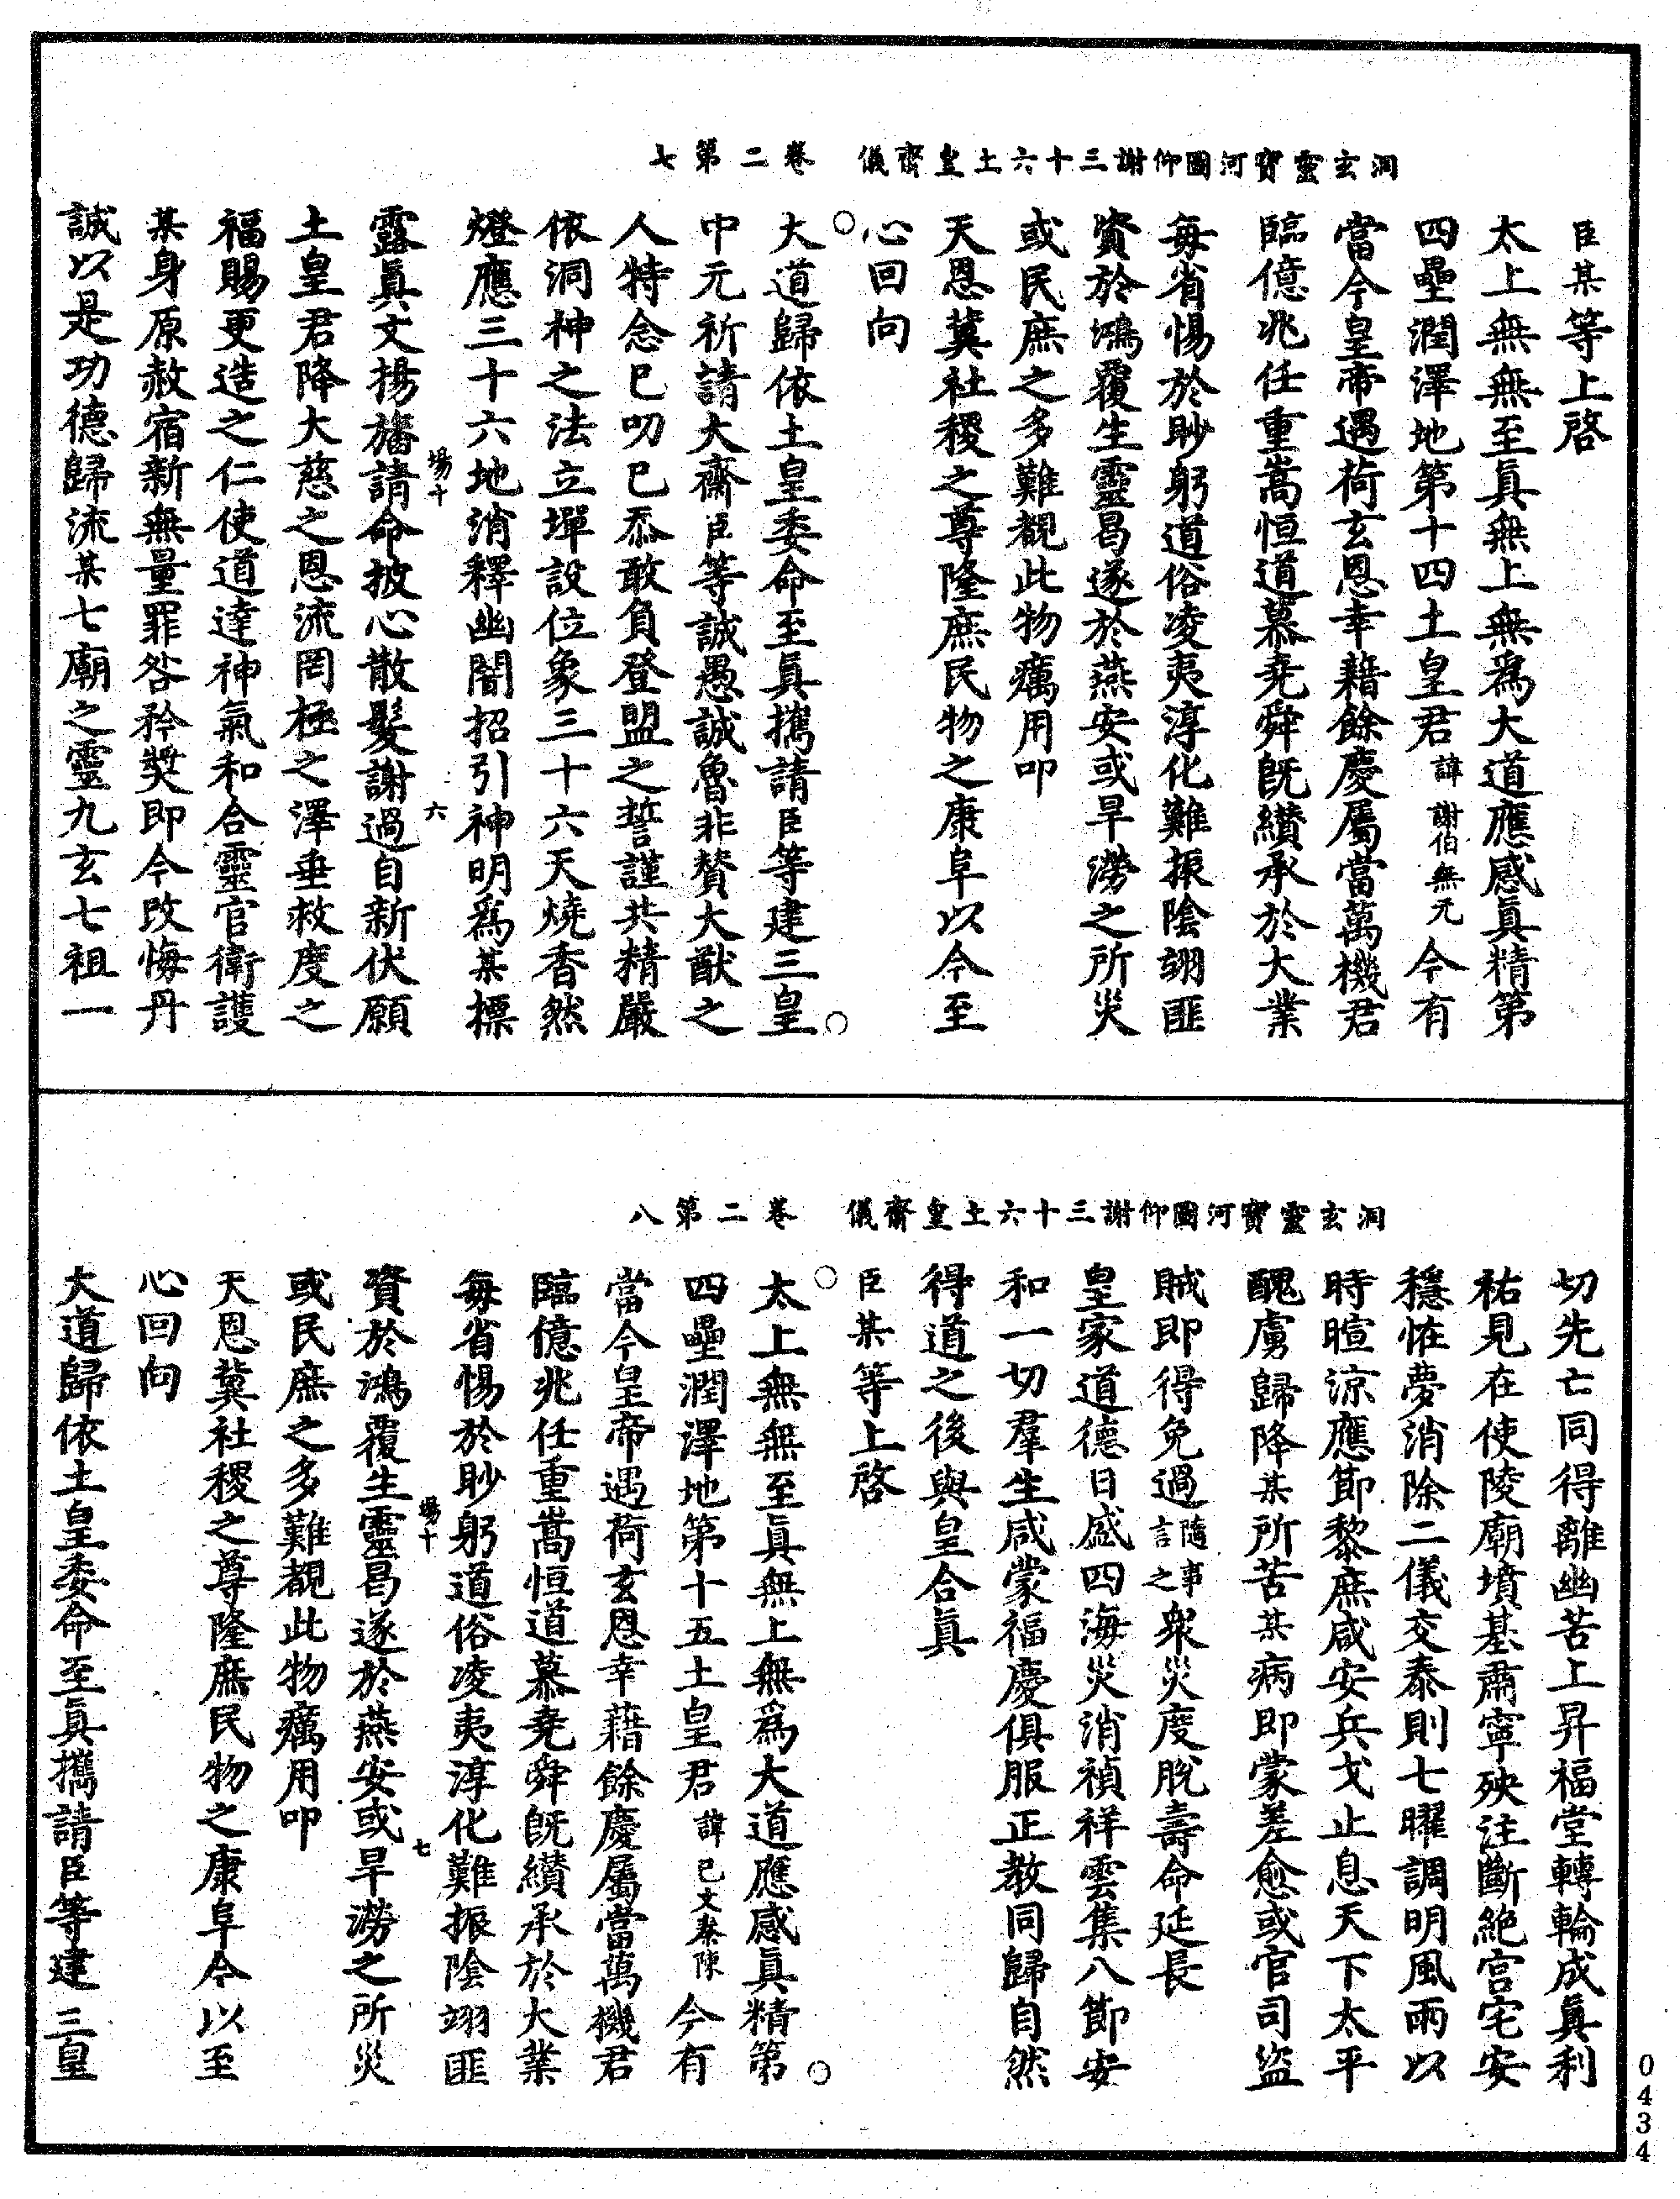 洞玄靈寶河圖仰謝三十六土皇齋儀　卷二第七
臣某等上啓
太上無無至眞無上無爲大道應感眞精第
四壘潤澤地第十四土皇君諱謝伯無元今有
當今皇帝遇荷玄恩幸藉餘慶屬當萬機君
臨億兆任重嵩恒道慕堯舜旣纘承於大業
每省惕於眇躬道俗凌夷淳化難振陰翊匪
資於鴻覆生靈昌遂於燕安或旱澇之所災
或民庶之多難覩此物癘用叩
天恩冀社稷之尊隆庶民物之康阜以今至
心回向
大道歸依土皇委命至眞擕請臣等建三皇
中元祈請大齋臣等誠愚誠魯非賛大猷之
人特念已叨已忝敢負登盟之誓謹共精嚴
依洞神之法立墠設位象三十六天燒香然
燈應三十六地消釋幽闇招引神明爲某摽
場十　六
露眞文揚旛請命披心散髮謝過自新伏願
土皇君降大慈之恩流罔極之澤垂救度之
福賜更造之仁使道達神氣和合靈官衛護
某身原赦宿新無量罪咎矜奬即今改悔丹
誠以是功德歸流某七廟之靈九玄七祖一
洞玄靈寶河圖仰謝三十六土皇齋儀　卷二第八
切先亡同得離幽苦上昇福堂轉輪成眞利
祐見在使陵廟墳基肅寧殃注斷絕宮宅安
穩恠夢消除二儀交泰則七曜調明風雨以
時暄涼應節黎庶咸安兵戈止息天下太平
醜虜歸降某所苦某病即蒙差愈或官司盜
賊即得免過隨事言之衆災度脫壽命延長
皇家道德日盛四海災消禎祥雲集八節安
和一切羣生咸蒙福慶俱服正教同歸自然
得道之後與皇合眞
臣某等上啓
太上無無至眞無上無爲大道應感眞精第
四壘潤澤地第十五土皇君諱已文秦陳今有
當今皇帝遇荷玄恩幸藉餘慶屬當萬機君
臨億兆任重嵩恒道慕堯舜旣纘承於大業
每省惕於眇躬道俗凌夷淳化難振陰翊匪
場十　七
資於鴻覆生靈昌遂於燕安或旱澇之所災
或民庶之多難覩此物癘用叩
天恩冀社稷之尊隆庶民物之康阜今以至
心回向
大道歸依土皇委命至眞擕請臣等建三皇
0434